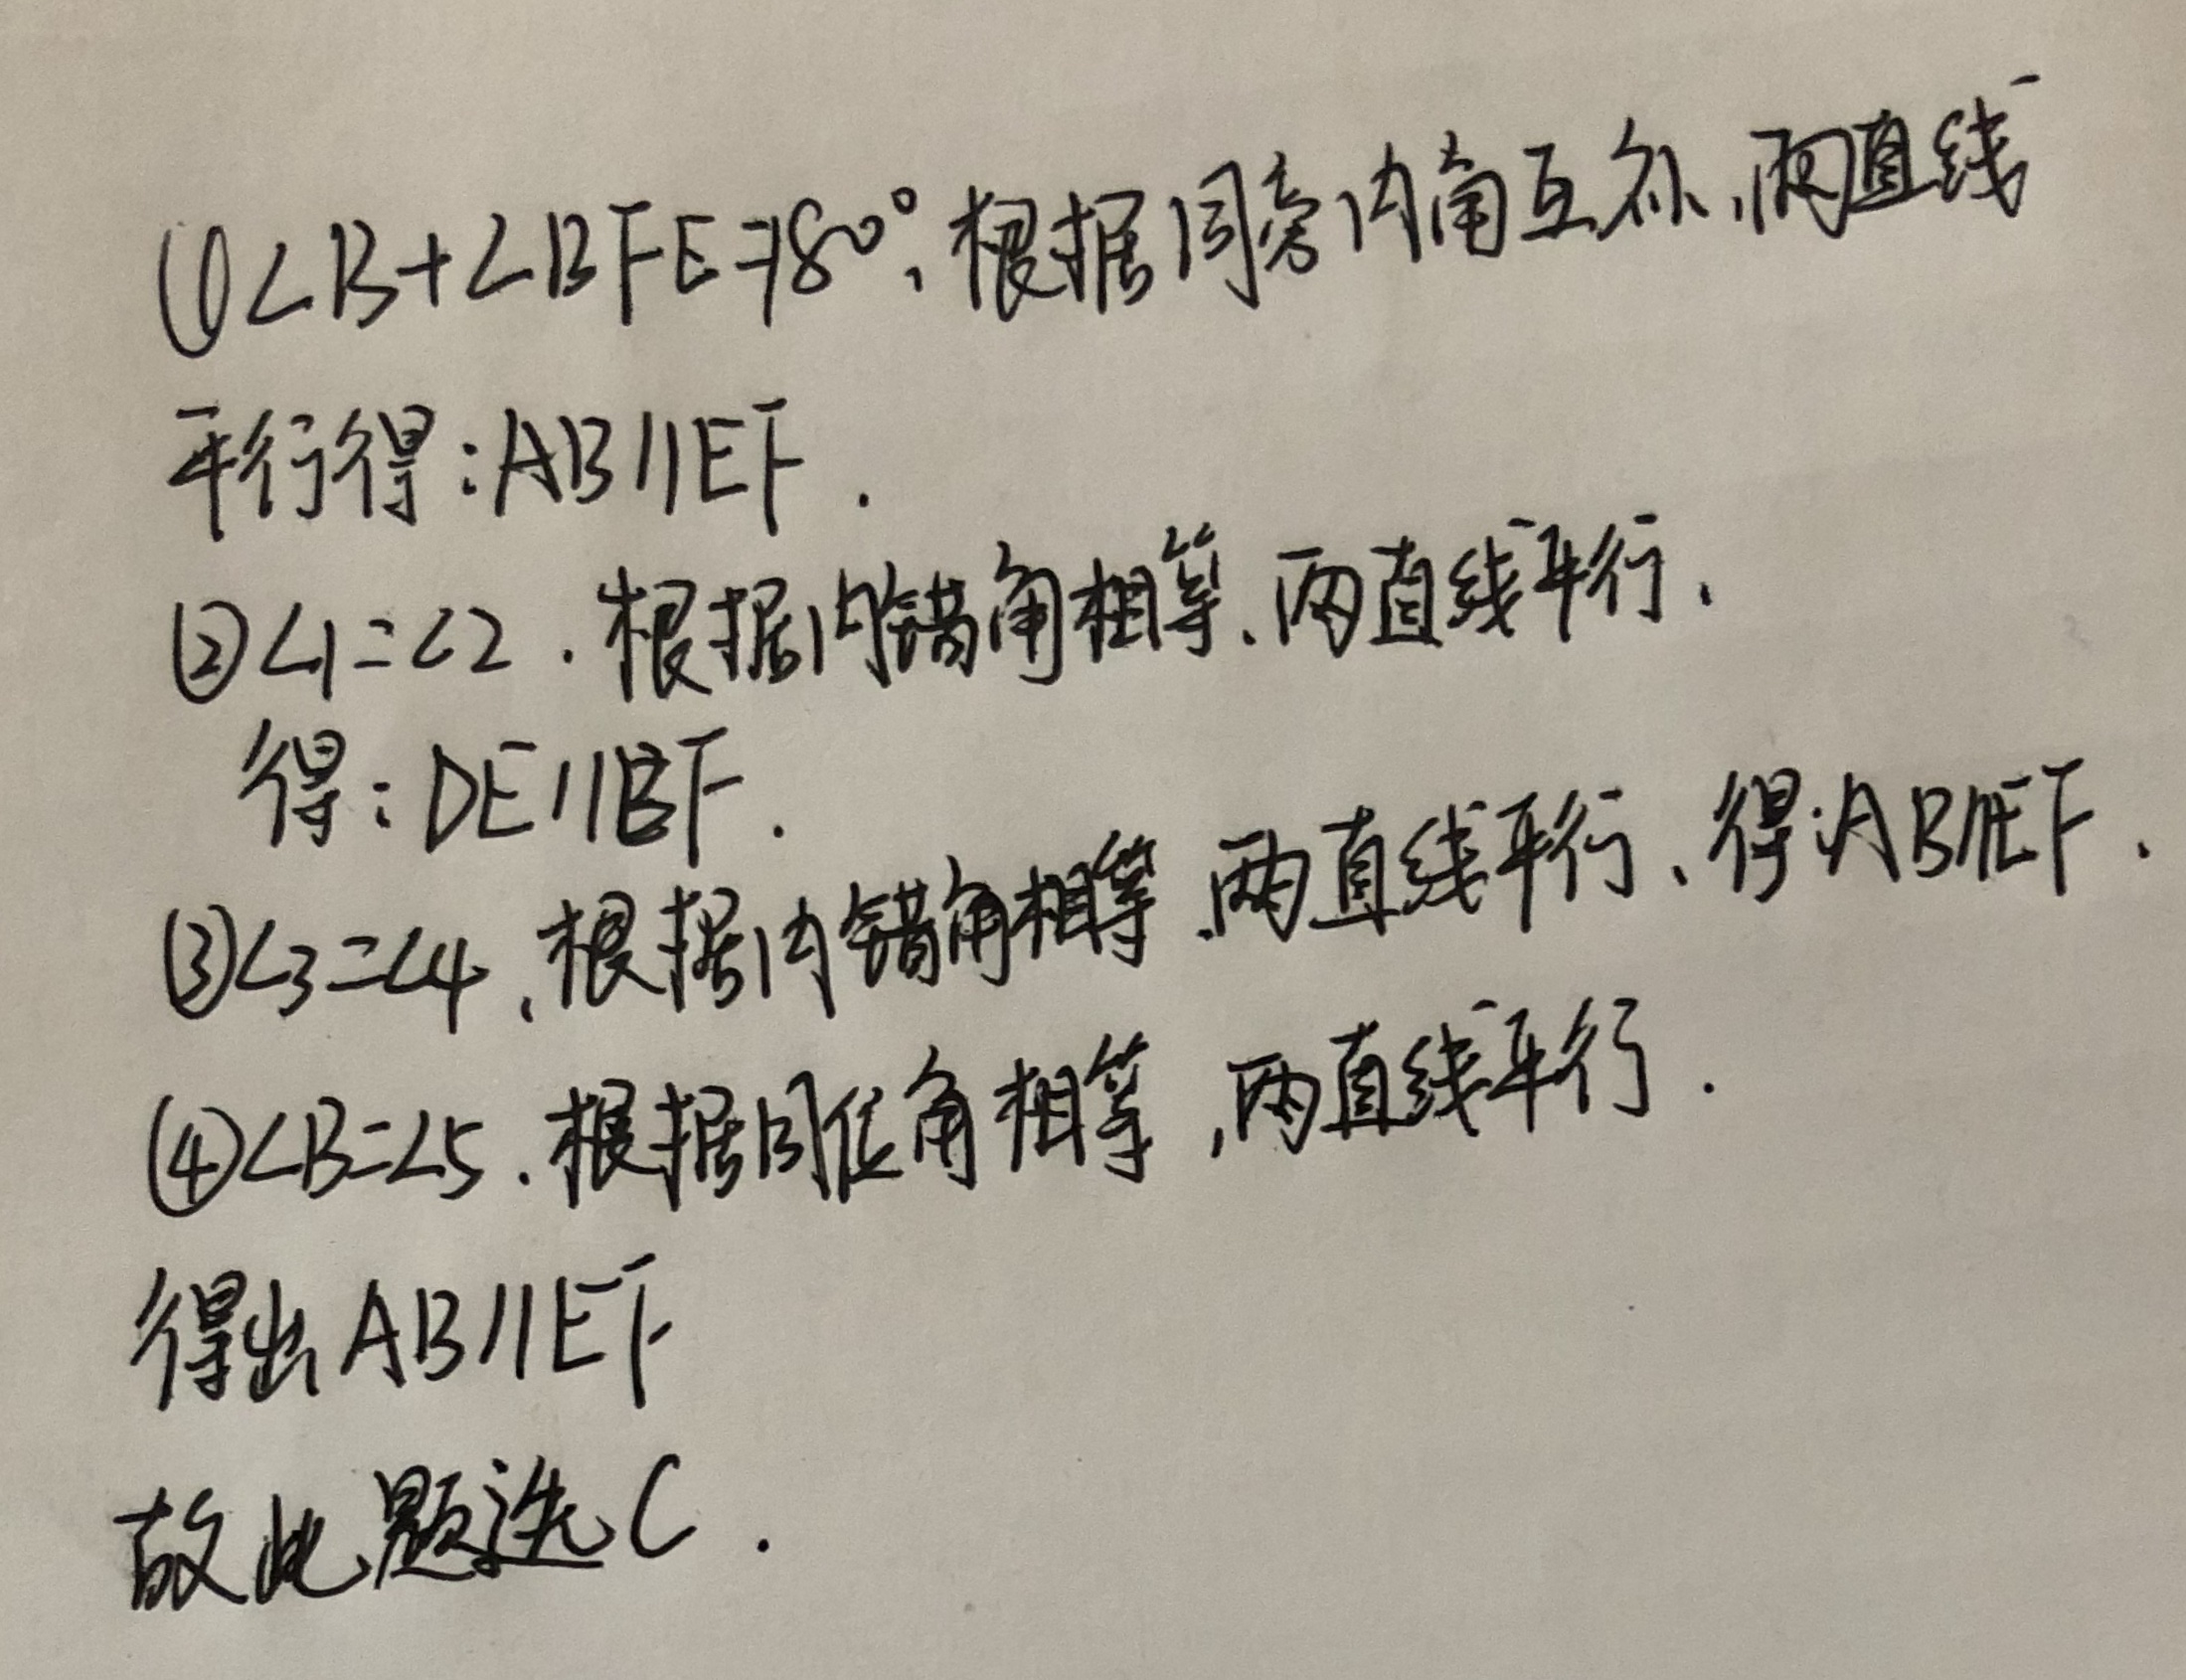 ①∠B+∠BFE=180°,根据同旁内角互补,两直线
平行得:AB∥EF.
②∠1=∠2.根据内错角相等,两直线平行,
得:DE∥BF.
③∠3=∠4,根据内错角相等,两直线平行,得:AB∥EF.
④∠B=∠5.根据同位角相等,两直线平行.
得出AB∥EF
故此题选C.